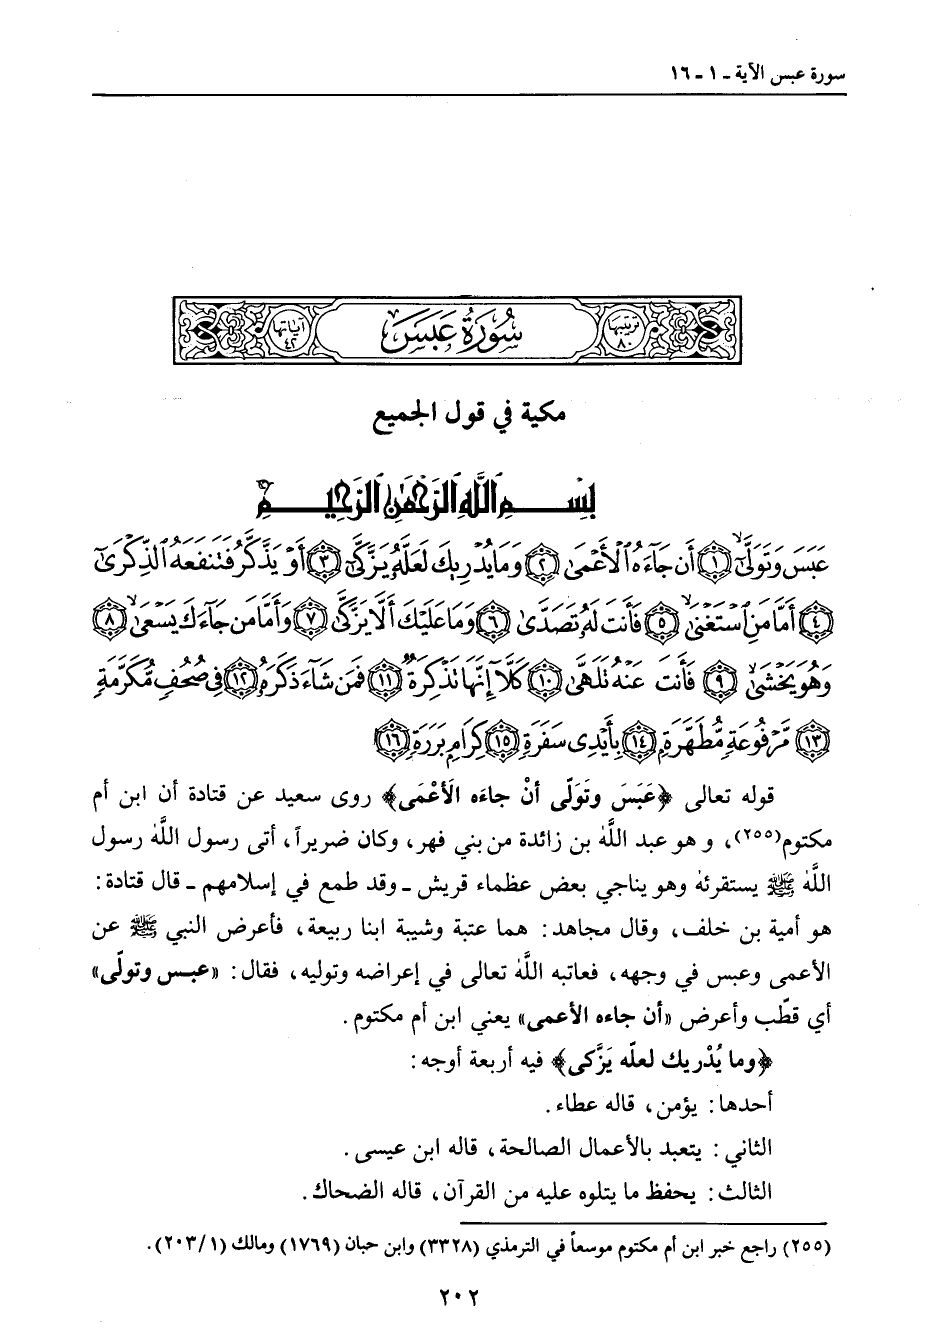 سورة عبس الآية - ١ - ١٦
ترتيبها ٨٠ سُورَةُ عَبَسَ آياتها ٤٢
مكية في قول الجميع
بِسْمِ اللَّهِ الرَّحْمَٰنِ الرَّحِيمِ
عَبَسَ وَتَوَلَّىٰٓ ﴿١﴾ أَن جَآءَهُ ٱلْأَعْمَىٰ ﴿٢﴾ وَمَا يُدْرِيكَ لَعَلَّهُۥ يَزَّكَّىٰٓ ﴿٣﴾ أَوْ يَذَّكَّرُ فَتَنفَعَهُ ٱلذِّكْرَىٰٓ
﴿٤﴾ أَمَّا مَنِ ٱسْتَغْنَىٰ ﴿٥﴾ فَأَنتَ لَهُۥ تَصَدَّىٰ ﴿٦﴾ وَمَا عَلَيْكَ أَلَّا يَزَّكَّىٰ ﴿٧﴾ وَأَمَّا مَن جَآءَكَ يَسْعَىٰ ﴿٨﴾
وَهُوَ يَخْشَىٰ ﴿٩﴾ فَأَنتَ عَنْهُ تَلَهَّىٰ ﴿١٠﴾ كَلَّآ إِنَّهَا تَذْكِرَةٌ ﴿١١﴾ فَمَن شَآءَ ذَكَرَهُۥ ﴿١٢﴾ فِى صُحُفٍ مُّكَرَّمَةٍ
﴿١٣﴾ مَّرْفُوعَةٍ مُّطَهَّرَةٍۭ ﴿١٤﴾ بِأَيْدِى سَفَرَةٍ ﴿١٥﴾ كِرَامٍۭ بَرَرَةٍ ﴿١٦﴾
قوله تعالى ﴿عَبَسَ وتَوَلّى أنْ جاءَه الأعْمَى﴾ روى سعيد عن قتادة أن ابن أم
مكتوم(٢٥٥)، وهو عبد اللَّه بن زائدة من بني فهر، وكان ضريراً، أتى رسول اللَّه رسول
اللَّه ﷺ يستقرئه وهو يناجي بعض عظماء قريش - وقد طمع في إسلامهم - قال قتادة:
هو أمية بن خلف، وقال مجاهد: هما عتبة وشيبة ابنا ربيعة، فأعرض النبي ﷺ عن
الأعمى وعبس في وجهه، فعاتبه اللَّه تعالى في إعراضه وتوليه، فقال: «عبس وتولّى»
أي قطّب وأعرض «أن جاءه الأعمى» يعني ابن أم مكتوم.
﴿وما يُدْريك لعلّه يَزَّكى﴾ فيه أربعة أوجه:
أحدها: يؤمن، قاله عطاء.
الثاني: يتعبد بالأعمال الصالحة، قاله ابن عيسى.
الثالث: يحفظ ما يتلوه عليه من القرآن، قاله الضحاك.
(٢٥٥) راجع خبر ابن أم مكتوم موسعاً في الترمذي (٣٣٢٨) وابن حبان (١٧٦٩) ومالك (٢٠٣/١).
٢٠٢